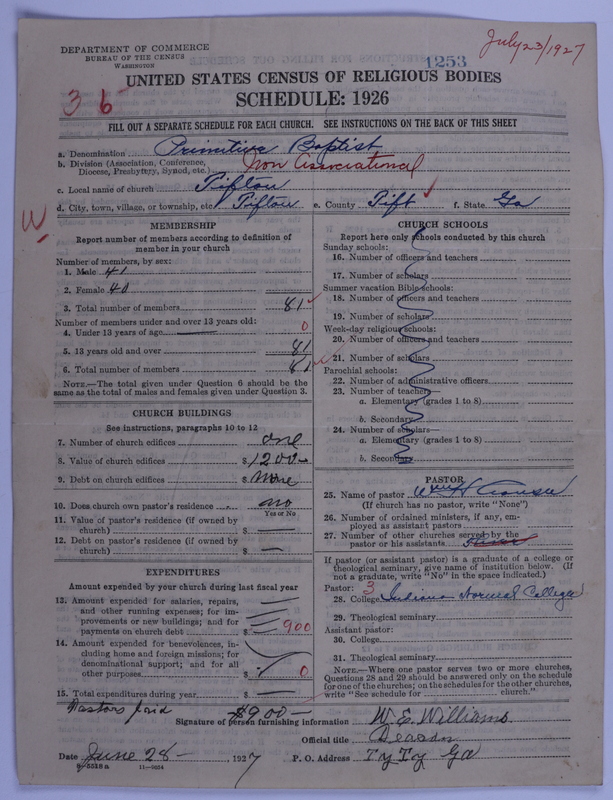 July 23/1927
DEPARTMENT OF COMMERCE
BUREAU OF THE CENSUS
WASHINGTON
1253
UNITED STATES CENSUS OF RELIGIOUS BODIES
36
SCHEDULE: 1926
FILL OUT A SEPARATE SCHEDULE FOR EACH CHURCH. SEE INSTRUCTIONS ON THE BACK OF THIS SHEET
a. Denomination Primitive Baptist
b. Division (Association, Conference, Diocese, Presbytery, Synod, etc.) Non Associational
c. Local name of church Tifton
d. City, town, village, or township, etc. Tifton e. County Tift f. State Ga
W
MEMBERSHIP
Report number of members according to definition of
member in your church
Number of members, by sex:
1. Male 41
2. Female 40
3. Total number of members 81
Number of members under and over 13 years old:
4. Under 13 years of age 0
5. 13 years old and over 81
6. Total number of members 81
NOTE.—The total given under Question 6 should be the
same as the total of males and females given under Question 3.
CHURCH BUILDINGS
See instructions, paragraphs 10 to 12
7. Number of church edifices one
8. Value of church edifices $ 1200
9. Debt on church edifices $ None
10. Does church own pastor's residence no
Yes or No
11. Value of pastor's residence (if owned by
church) $
12. Debt on pastor's residence (if owned by
church) $
EXPENDITURES
Amount expended by your church during last fiscal year
13. Amount expended for salaries, repairs,
and other running expenses; for im-
provements or new buildings; and for
payments on church debt $ 900
14. Amount expended for benevolences, in-
cluding home and foreign missions; for
denominational support; and for all
other purposes $ 0
15. Total expenditures during year $
Pastors paid $900
CHURCH SCHOOLS
Report here only schools conducted by this church
Sunday schools:
16. Number of officers and teachers
17. Number of scholars
Summer vacation Bible schools:
18. Number of officers and teachers
19. Number of scholars
Week-day religious schools:
20. Number of officers and teachers
21. Number of scholars
Parochial schools:
22. Number of administrative officers
23. Number of teachers—
a. Elementary (grades 1 to 8)
b. Secondary
24. Number of scholars—
a. Elementary (grades 1 to 8)
b. Secondary
PASTOR
25. Name of pastor Wm H Crouse
(If church has no pastor, write "None")
26. Number of ordained ministers, if any, em-
ployed as assistant pastors
27. Number of other churches served by the
pastor or his assistants
If pastor (or assistant pastor) is a graduate of a college or
theological seminary, give name of institution below. (If
not a graduate, write "No" in the space indicated.)
Pastor: 3
28. College Indiana Normal College
29. Theological seminary
Assistant pastor:
30. College
31. Theological seminary
NOTE.—Where one pastor serves two or more churches,
Questions 28 and 29 should be answered only on the schedule
for one of the churches; on the schedules for the other churches,
write "See schedule for church."
Signature of person furnishing information W. E. Williams
Official title Deacon
Date June 28, 1927 P. O. Address TyTy Ga
8—5518a 11—9034